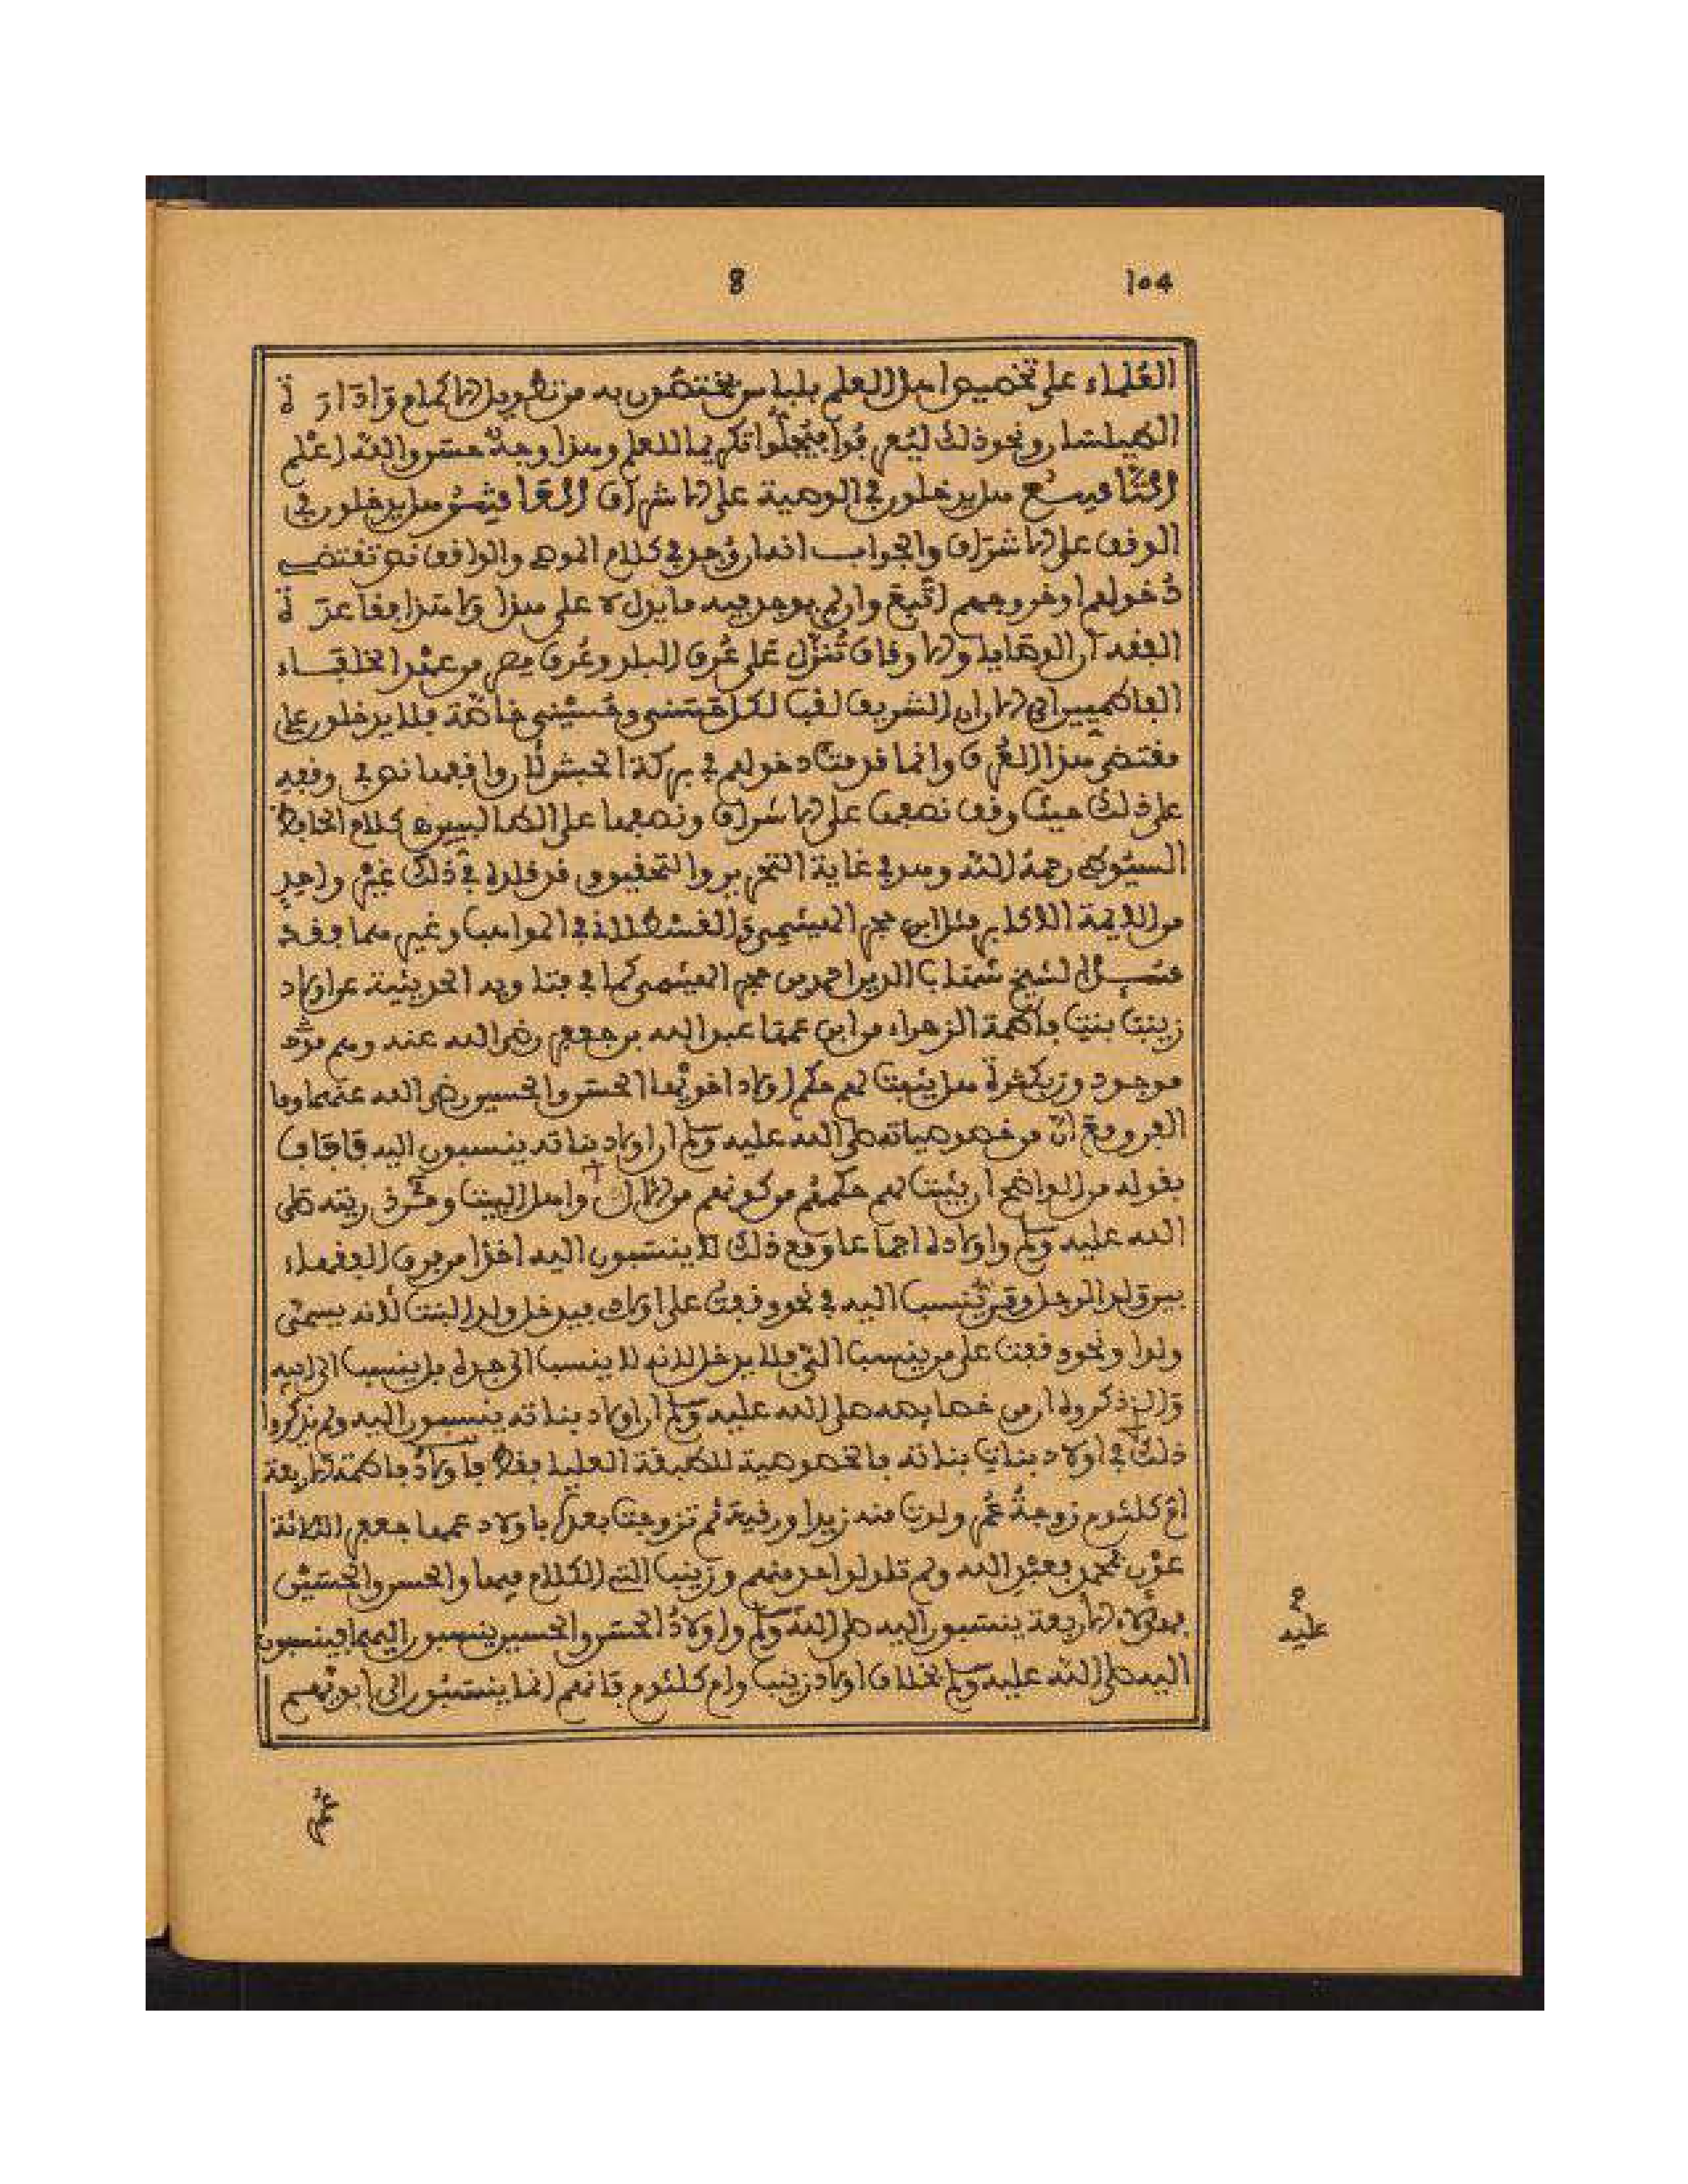 104
8
العلماء على تخصيص اهل العلم بلباس يختصون به من تطويل الاكمام وادارة
الطيلسان ونحو ذلك ليعرفوا فيبجلوا تكريما للعلم وهذا وجه حسن والله اعلم
التاسع هل يدخلون في الوصية على الاشراف العاشر هل يدخلون في
الوقف على الاشراف والجواب انه ان وجد في كلام الموصي والواقف نص تقتضي
دخولهم او خروجهم اتبع وان لم يوجد فيه ما يدل لا على هذا ولا هذا فقاعدة
الفقه ان الوصايا والاوقاف تنزل على عرف البلد وعرف مصر من عهد الخلفاء
الفاطميين الى الان ان الشريف لقب لكل حسني وحسيني خاصة فلا يدخلون على
مقتضى هذا العرف وانما قدمت دخولهم في بركة الحبش لان واقفها نص في وقفه
على ذلك حيث وقف نصفها على الاشراف ونصفها على الطالبيين ه كلام الحافظ
السيوطي رحمه الله وهو في غاية التحرير والتحقيق وقد قلده في ذلك غير واحد
من الايمة الاكابر مثل ابن حجر الهيثمي والقسطلاني في المواهب وغيرهما وقد
سئل الشيخ شهاب الدين احمد بن حجر الهيثمي كما في فتاويه الحديثية عن اولاد
زينب بنت فاطمة الزهراء من ابن عمها عبد الله بن جعفر رضي الله عنه وهم
موجودون بكثرة هل يثبت لهم حكم اولاد اخويها الحسن والحسين رضي الله عنهما وما
الفرق مع ان من خصوصياته صلى الله عليه وسلم ان اولاد بناته ينسبون اليه فاجاب
بقوله من الواضح ان يثبت لهم حكمهم من كونهم من الال واهل البيت و ذريته صلى
الله عليه وسلم واولاده اجماعا ومع ذلك لا ينسبون اليه اخذا من فرق الفقهاء
بين ولد الرجل ومن ينسب اليه في نحو وقفت على اولادي فيدخل ولد البنت لانه يسمى
ولدا ونحو وقفت على من ينسب الي فلا يدخل لانه لا ينسب الى جده بل ينسب الى ابيه
والذي ذكروه ان من خصايصه صلى الله عليه وسلم ان اولاد بناته ينسبون اليه ولم يذكروا
ذلك في اولاد بنات بناته فالخصوصية للطبقة العليا فقط فاولاد فاطمة الاربعة
ام كلثوم زوجة عمر ولدت منه زيدا ورقية ثم تزوجت بعده باولاد عمها جعفر الثلاثة
عون فمحمد فعبد الله ولم تلد لواحد منهم وزينب التي الكلام فيها والحسن والحسين
فهؤلاء الاربعة ينسبون اليه صلى الله وسلم واولاد الحسن والحسين ينسبون اليهما فينسبون
اليه صلى الله عليه وسلم بخلاف اولاد زينب وام كلثوم فانهم انما ينسبون الى ابويهم
عليه
عمر